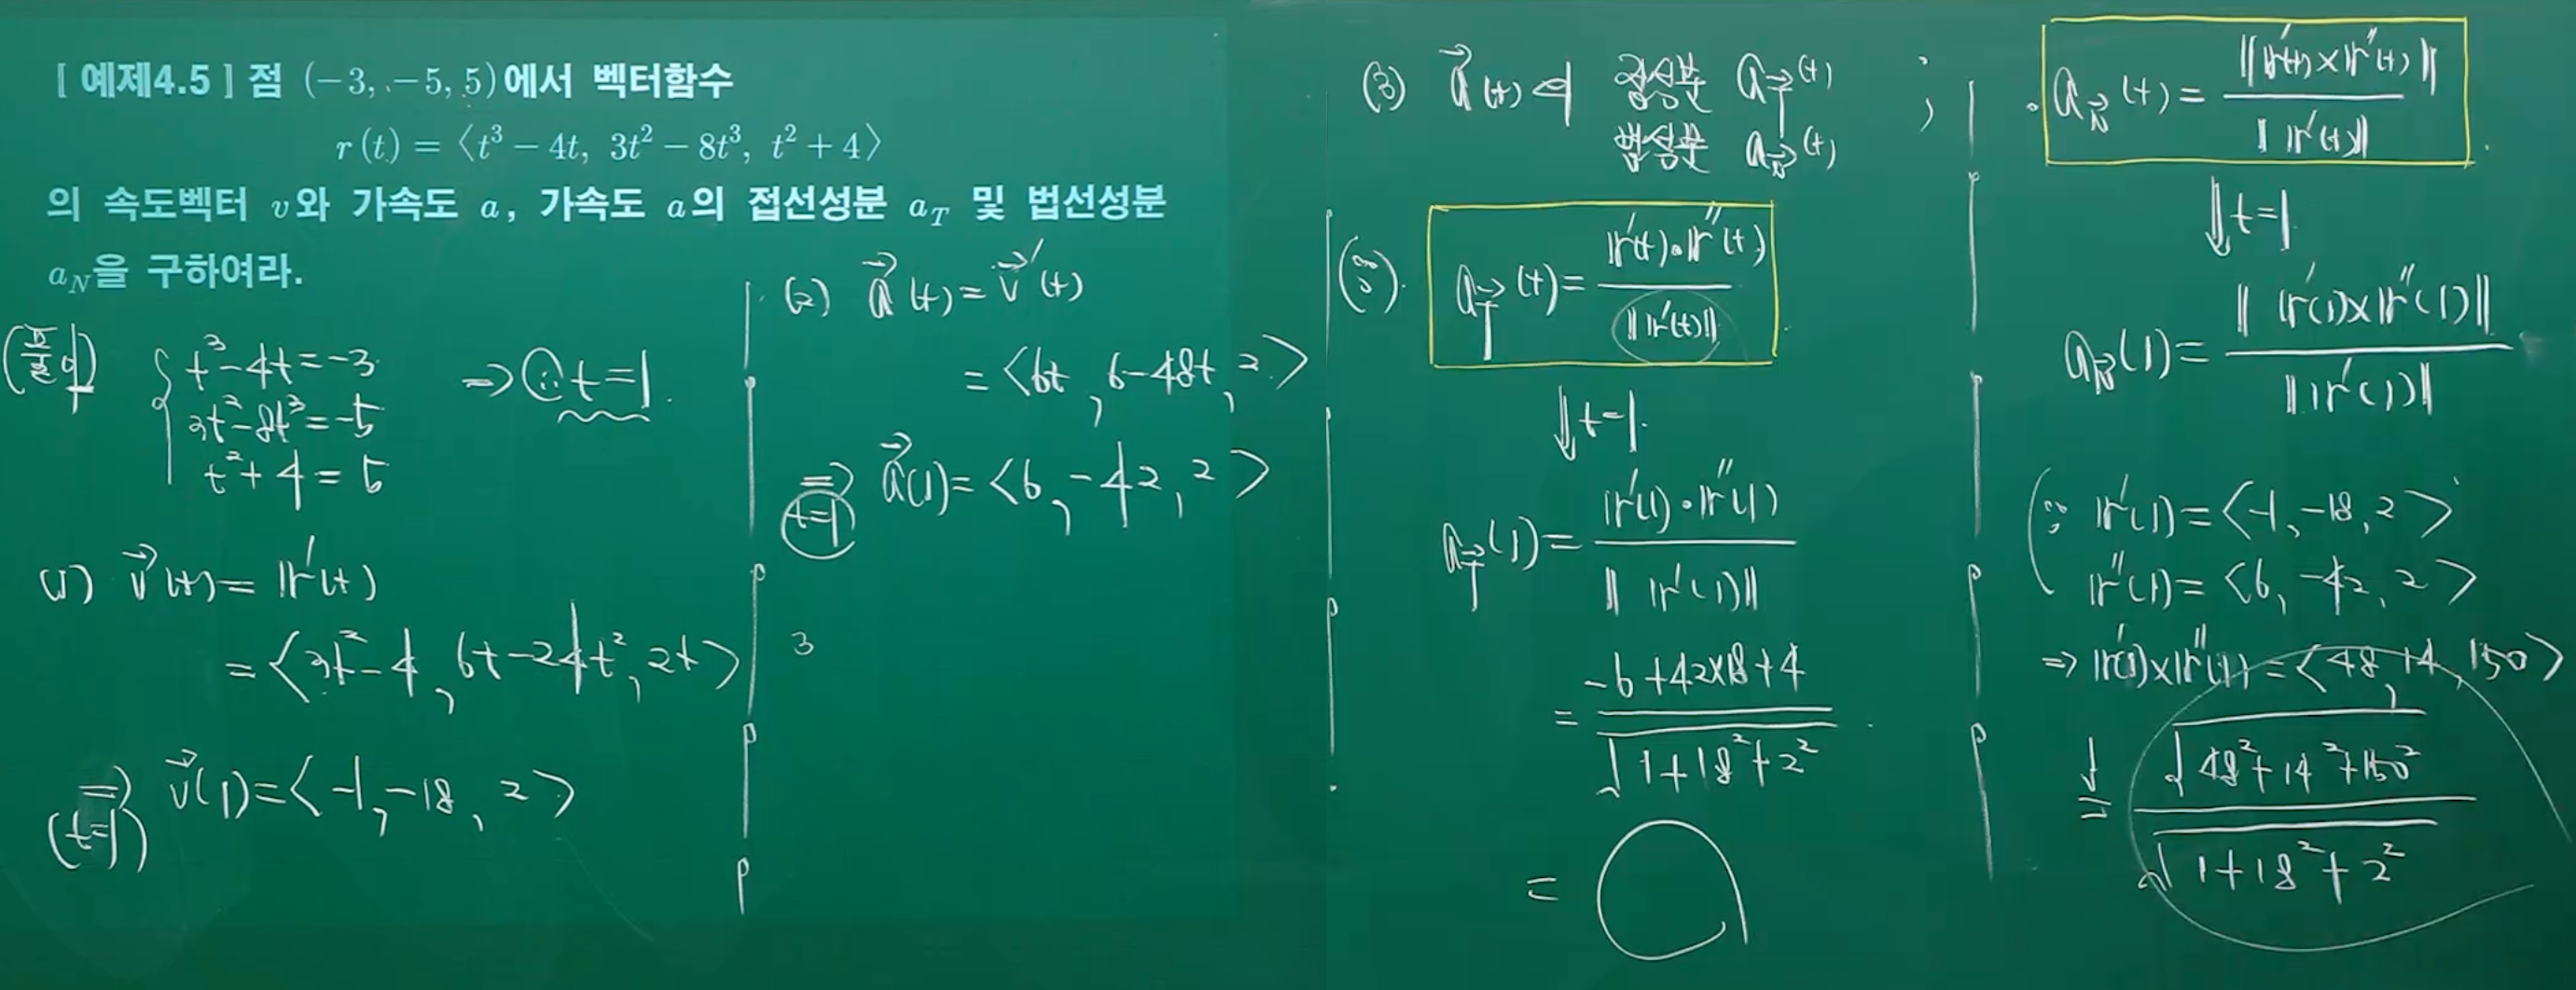 [ 예제4.5 ] 점 (−3, −5, 5)에서 벡터함수
r(t) = ⟨t³ − 4t, 3t² − 8t³, t² + 4⟩
의 속도벡터 v와 가속도 a, 가속도 a의 접선성분 a_T 및 법선성분
a_N을 구하여라.
(풀이)
t³ − 4t = −3
3t² − 8t³ = −5
t² + 4 = 5
⇒ ∴ t = 1
(1) v⃗(t) = r′(t)
= ⟨3t² − 4, 6t − 24t², 2t⟩
⇒ (t=1) v⃗(1) = ⟨−1, −18, 2⟩
(2) a⃗(t) = v⃗′(t)
= ⟨6t, 6 − 48t, 2⟩
⇒ (t=1) a⃗(1) = ⟨6, −42, 2⟩
3
(3) a⃗(t)의 접선성분 a_T⃗(t)
법선성분 a_N⃗(t) ;
(∵) a_T⃗(t) = r′(t)·r″(t) / ‖r′(t)‖
⇓ t=1
a_T⃗(1) = r′(1)·r″(1) / ‖r′(1)‖
= (−6 + 42×18 + 4) / √(1 + 18² + 2²)
=
a_N⃗(t) = ‖r′(t)×r″(t)‖ / ‖r′(t)‖
⇓ t=1
a_N⃗(1) = ‖r′(1)×r″(1)‖ / ‖r′(1)‖
(∵ r′(1) = ⟨−1, −18, 2⟩
r″(1) = ⟨6, −42, 2⟩
⇒ r′(1)×r″(1) = ⟨48, 14, 150⟩
= √(48² + 14² + 150²) / √(1 + 18² + 2²)